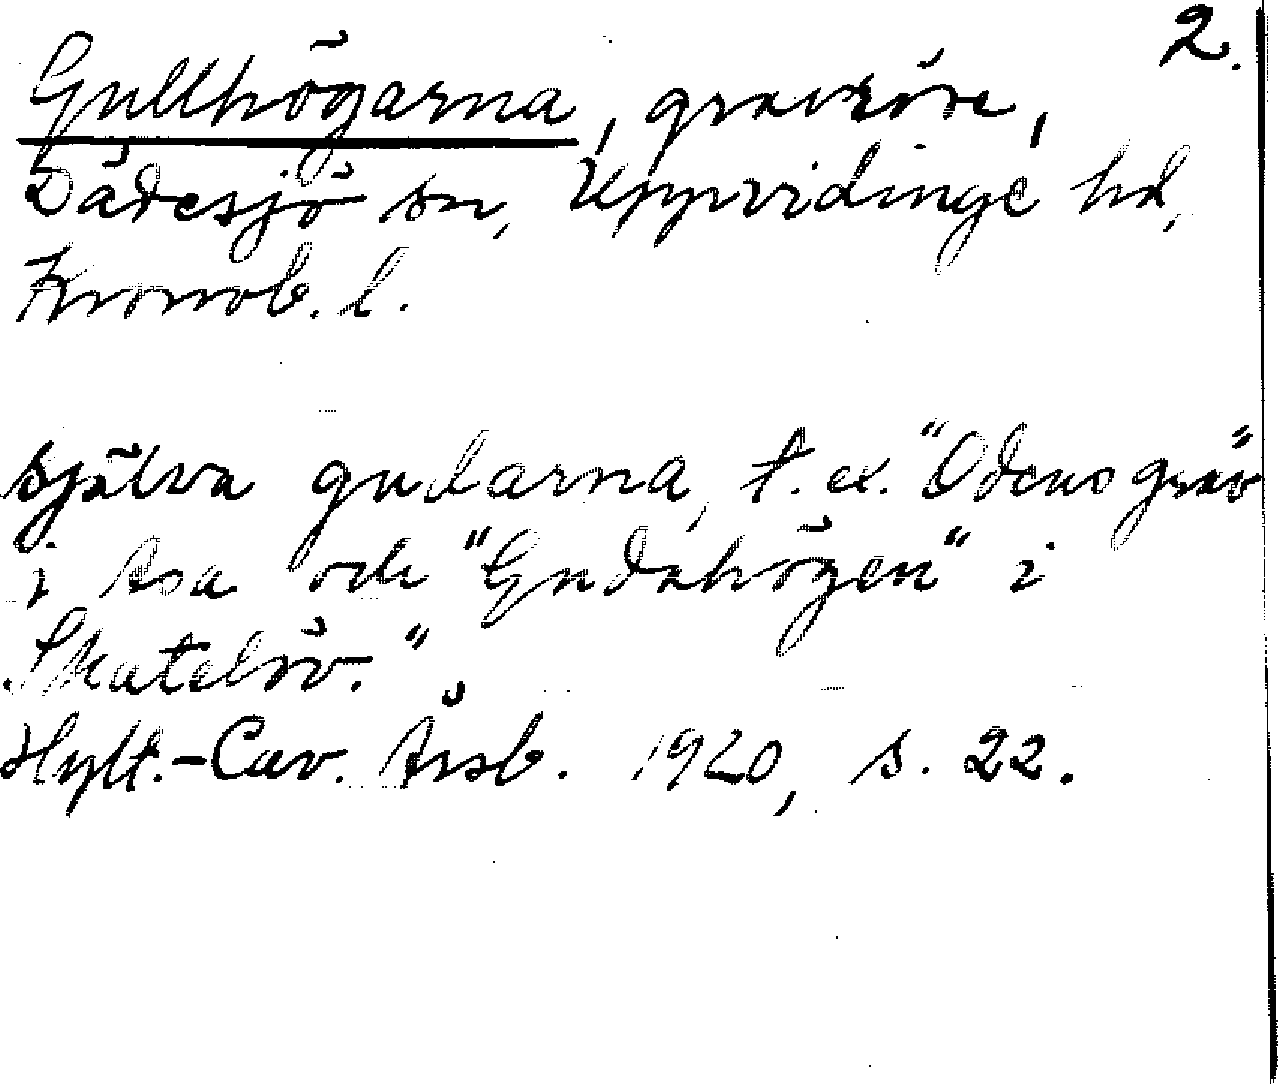 2.
Gullhögarna, gravröse,
Dädesjö sn, Uppvidinge hd,
Kronob. l.
själva gudarna, t. ex. "Odens grav"
i Asa och "Gudahögen" i
Skatelöv."
Hylt.-Cav. Årsb. 1920, s. 22.